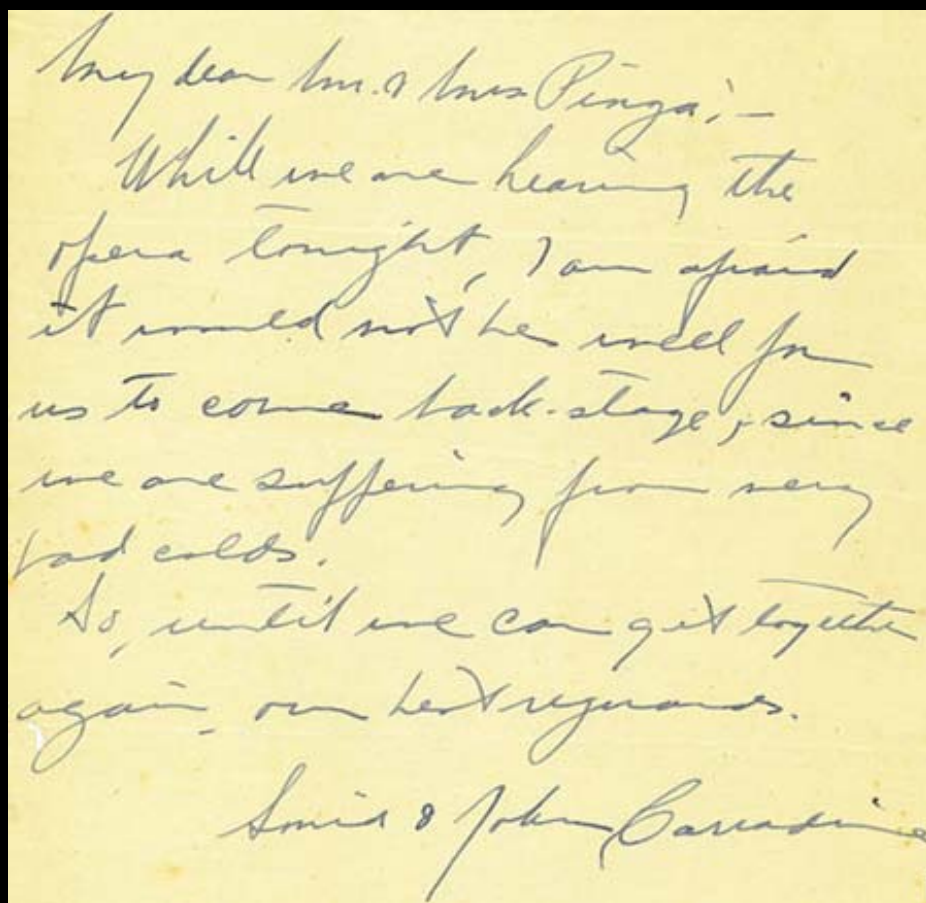 My dear Mr. & Mrs Pinza; –
While we are hearing the
opera tonight, I am afraid
it would not be well for
us to come back-stage, since
we are suffering from very
bad colds.
So, until we can get together
again, our best reguards.
Sonia & John Carradine